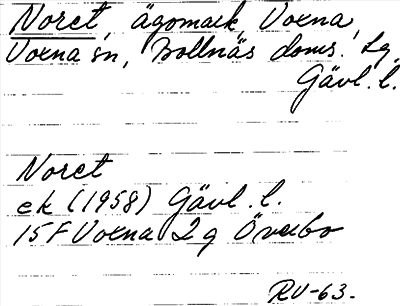 Noret, ägomark, Voxna,
Voxna sn, Bollnäs doms. Lg,
Gävl. l.
Noret
ek (1958) Gävl. l.
15F Voxna 2g Överbo
RV-63.